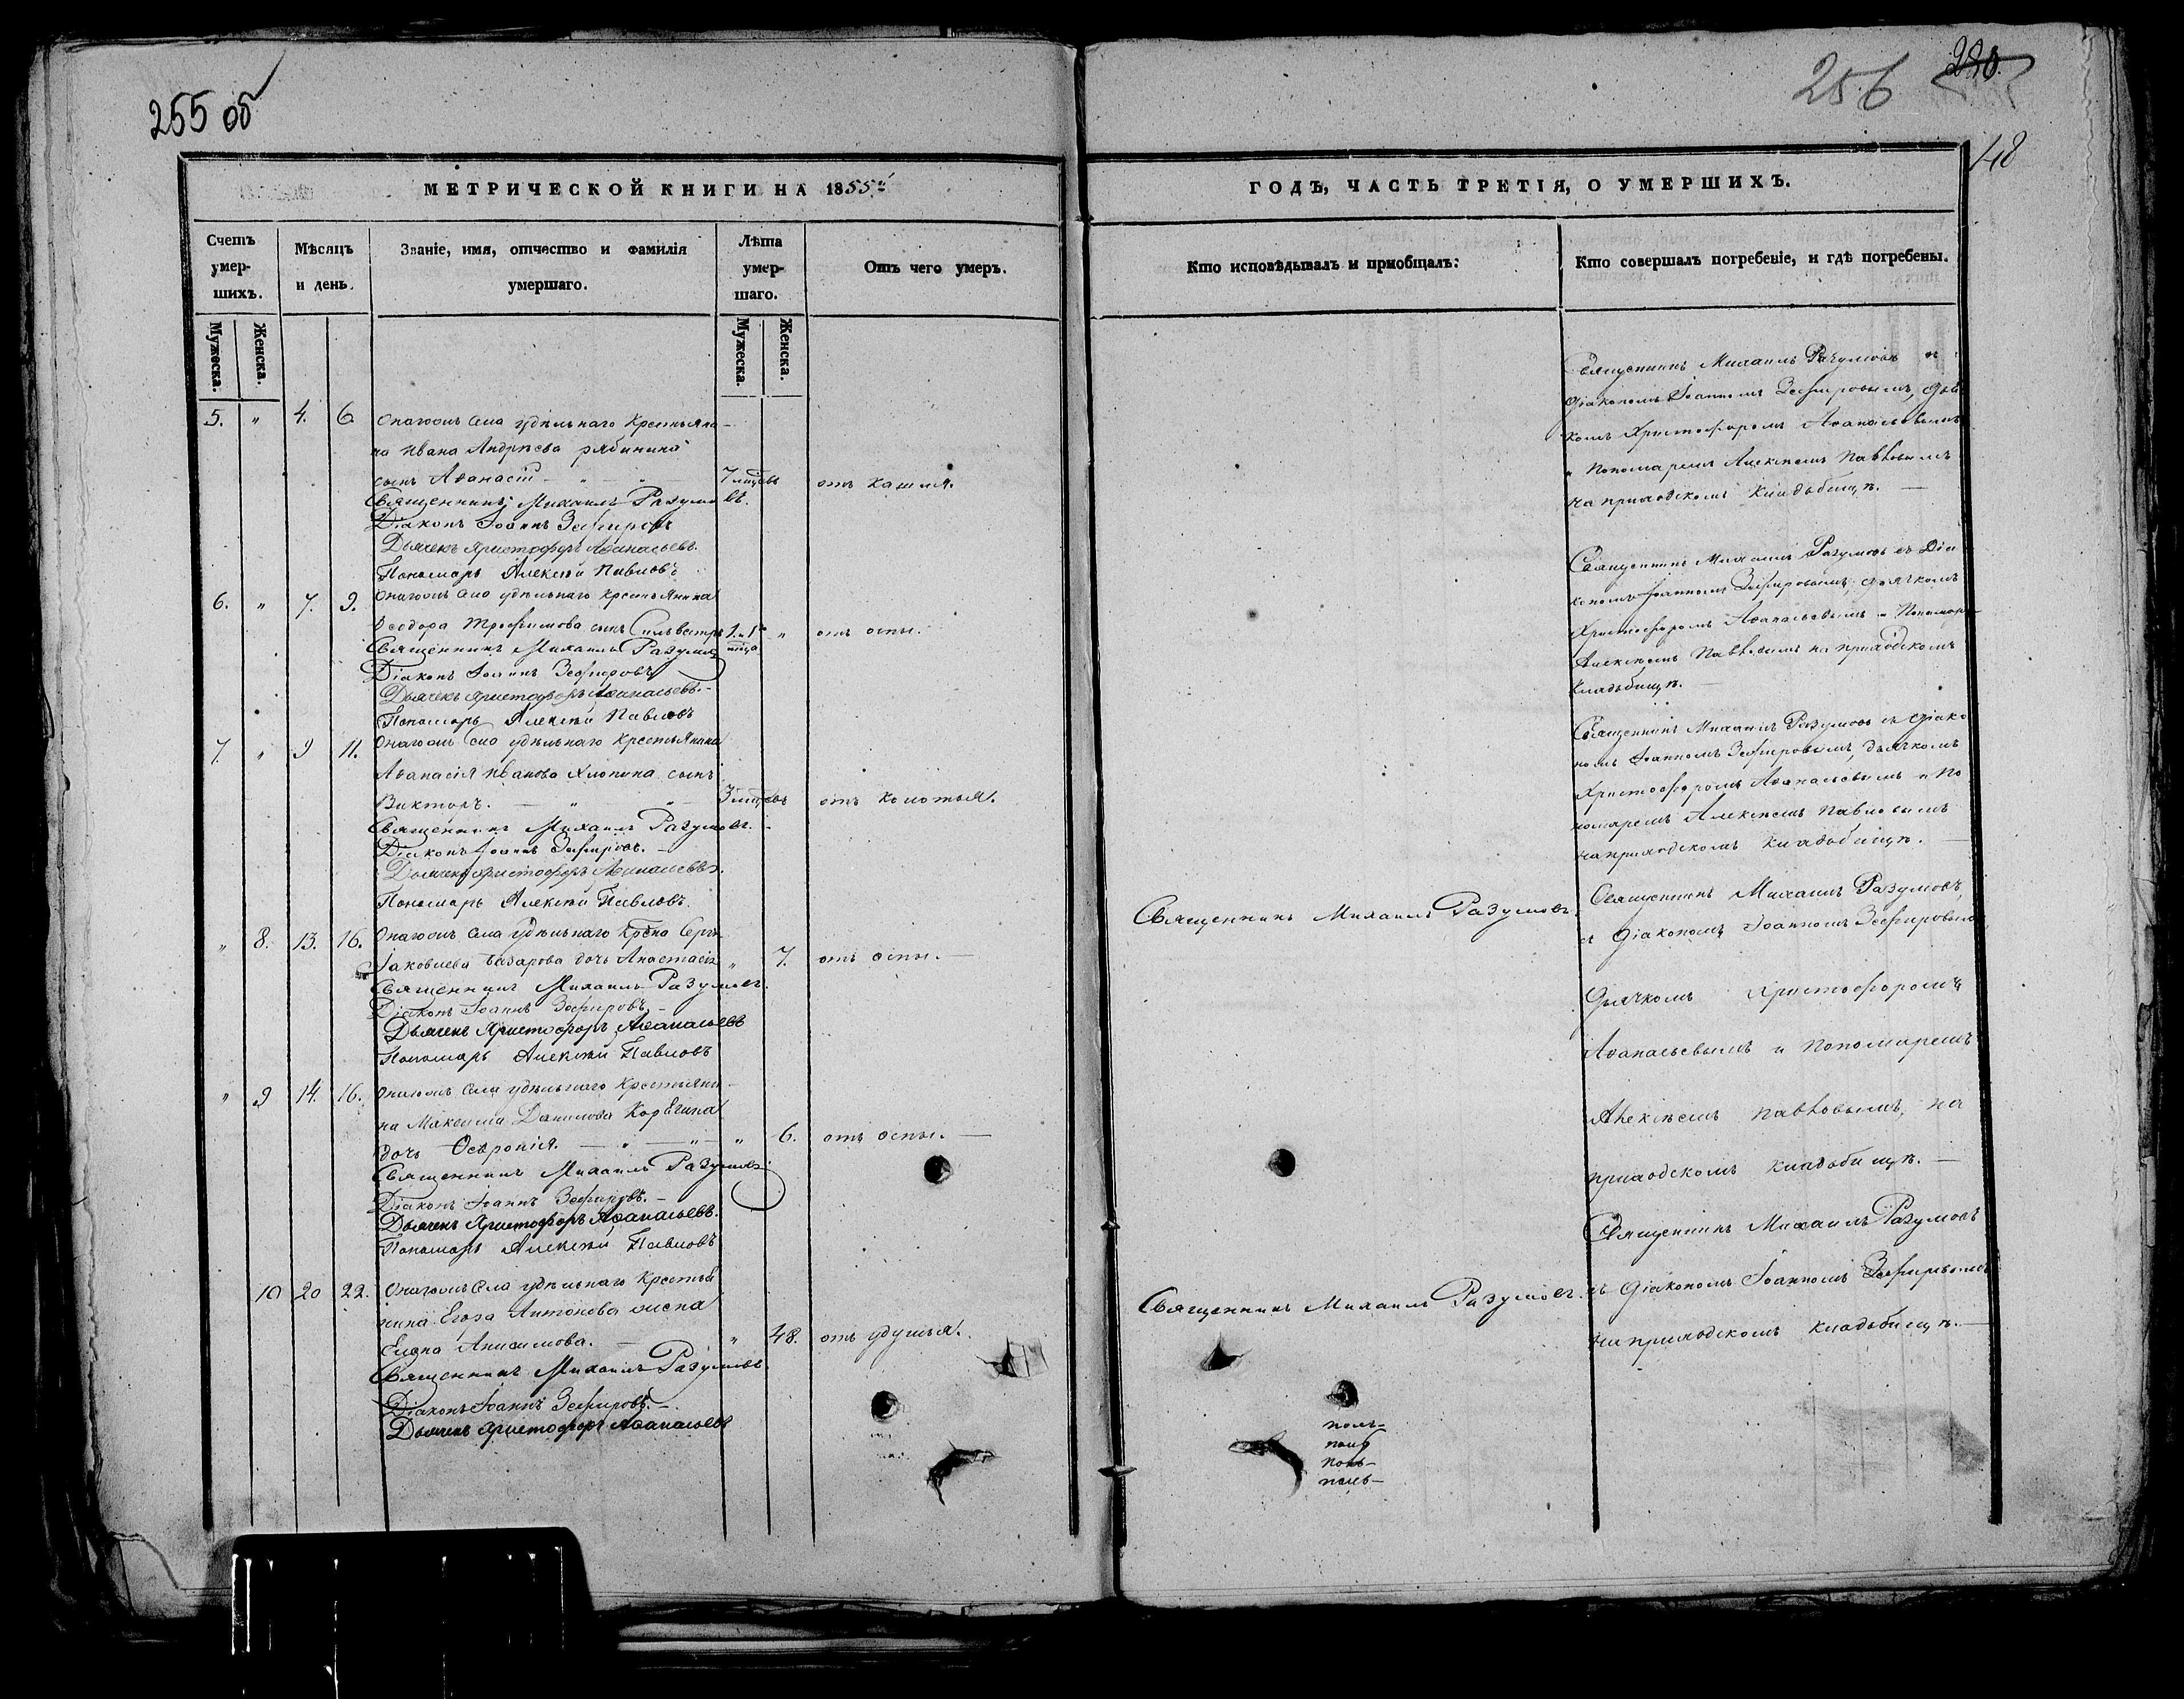 255 об
МЕТРИЧЕСКОЙ КНИГИ НА 1855й
Счетъ умерших.
Мѣсяцъ и день.
Званіе, имя, отчество и фамилія умершаго.
Лѣта умершаго.
Отъ чего умеръ.
Мужеска.
Женска.
Мужеска.
Женска.
5. " 4. 6
Онагожъ села удѣльнаго крестьяни-
на Ивана Андрѣева Рябинина
сынъ Аѳанасій 7 мцовъ отъ кашля.
Священникъ Михаилъ Разумовъ.
Діаконъ Іоаннъ Зефировъ
Дьячекъ Христофоръ Аѳанасьевъ.
Пономарь Алексѣй Павловъ
6. " 7. 9. Онагожъ села удѣльнаго крестьянина
Ѳеодора Трофимова сынъ Сильвестръ " отъ оспы.
Священникъ Михаилъ Разумовъ
Діаконъ Іоаннъ Зефировъ
Дьячекъ Христофоръ Аѳанасьевъ.
Пономарь Алексѣй Павловъ
7. " 9 11. Онагожъ села удѣльнаго крестьянина
Аѳанасія Иванова Хлопина сынъ
Викторъ. 3 мцовъ отъ колотья.
Священникъ Михаилъ Разумовъ.
Діаконъ Іоаннъ Зефировъ.
Дьячекъ Христофоръ Аѳанасьевъ.
Пономарь Алексѣй Павловъ.
" 8. 13. 16. Онагожъ села удѣльнаго
Іаковлева дочь Анастасія " 7. отъ оспы.
Священникъ Михаилъ Разумовъ.
Діаконъ Іоаннъ Зефировъ.
Дьячекъ Христофоръ Аѳанасьевъ
Пономарь Алексѣй Павловъ
" 9 14. 16. Онагожъ села удѣльнаго крестьяни-
на Максима Данилова
дочь " 6. отъ оспы.
Священникъ Михаилъ Разумовъ
Діаконъ Іоаннъ Зефировъ.
Дьячекъ Христофоръ Аѳанасьевъ.
Пономарь Алексѣй Павловъ
10 20 22. Онагожъ села удѣльнаго крестья
нина Егора Антонова жена
Елена Анисимова. " 48. отъ удушья.
Священникъ Михаилъ Разумовъ.
Діаконъ Іоаннъ Зефировъ.
Дьячекъ Христофоръ Аѳанасьевъ
256
148
ГОДЪ, ЧАСТЬ ТРЕТІЯ, О УМЕРШИХЪ.
Кто исповѣдывалъ и пріобщалъ:
Кто совершалъ погребеніе, и гдѣ погребены.
Священникъ Михаилъ Разумовъ
діакономъ Іоанномъ Зефировымъ, дья
комъ Христофоромъ Аѳанасьевымъ
и Пономаремъ Алексѣемъ Павловымъ
на приходскомъ кладбищѣ.
Священникъ Михаилъ Разумовъ съ Діа
кономъ Іоанномъ Зефировымъ, дьячкомъ
Христофоромъ Аѳанасьевымъ и Пономар
Алексѣемъ Павловымъ на приходскомъ
кладбищѣ.
Священникъ Михаилъ Разумовъ съ діако
номъ Іоанномъ Зефировымъ, дьячкомъ
Христофоромъ Аѳанасьевымъ и По
номаремъ Алексѣемъ Павловымъ
на приходскомъ кладбищѣ.
Священникъ Михаилъ Разумовъ.
Священникъ Михаилъ Разумовъ,
съ діакономъ Іоанномъ Зефировымъ
дьячкомъ Христофоромъ
Аѳанасьевымъ и Пономаремъ
Алексѣемъ Павловымъ, на
приходскомъ кладбищѣ.
Священникъ Михаилъ Разумовъ.
Священникъ Михаилъ Разумовъ
съ діакономъ Іоанномъ Зефировымъ
на приходскомъ кладбищѣ.